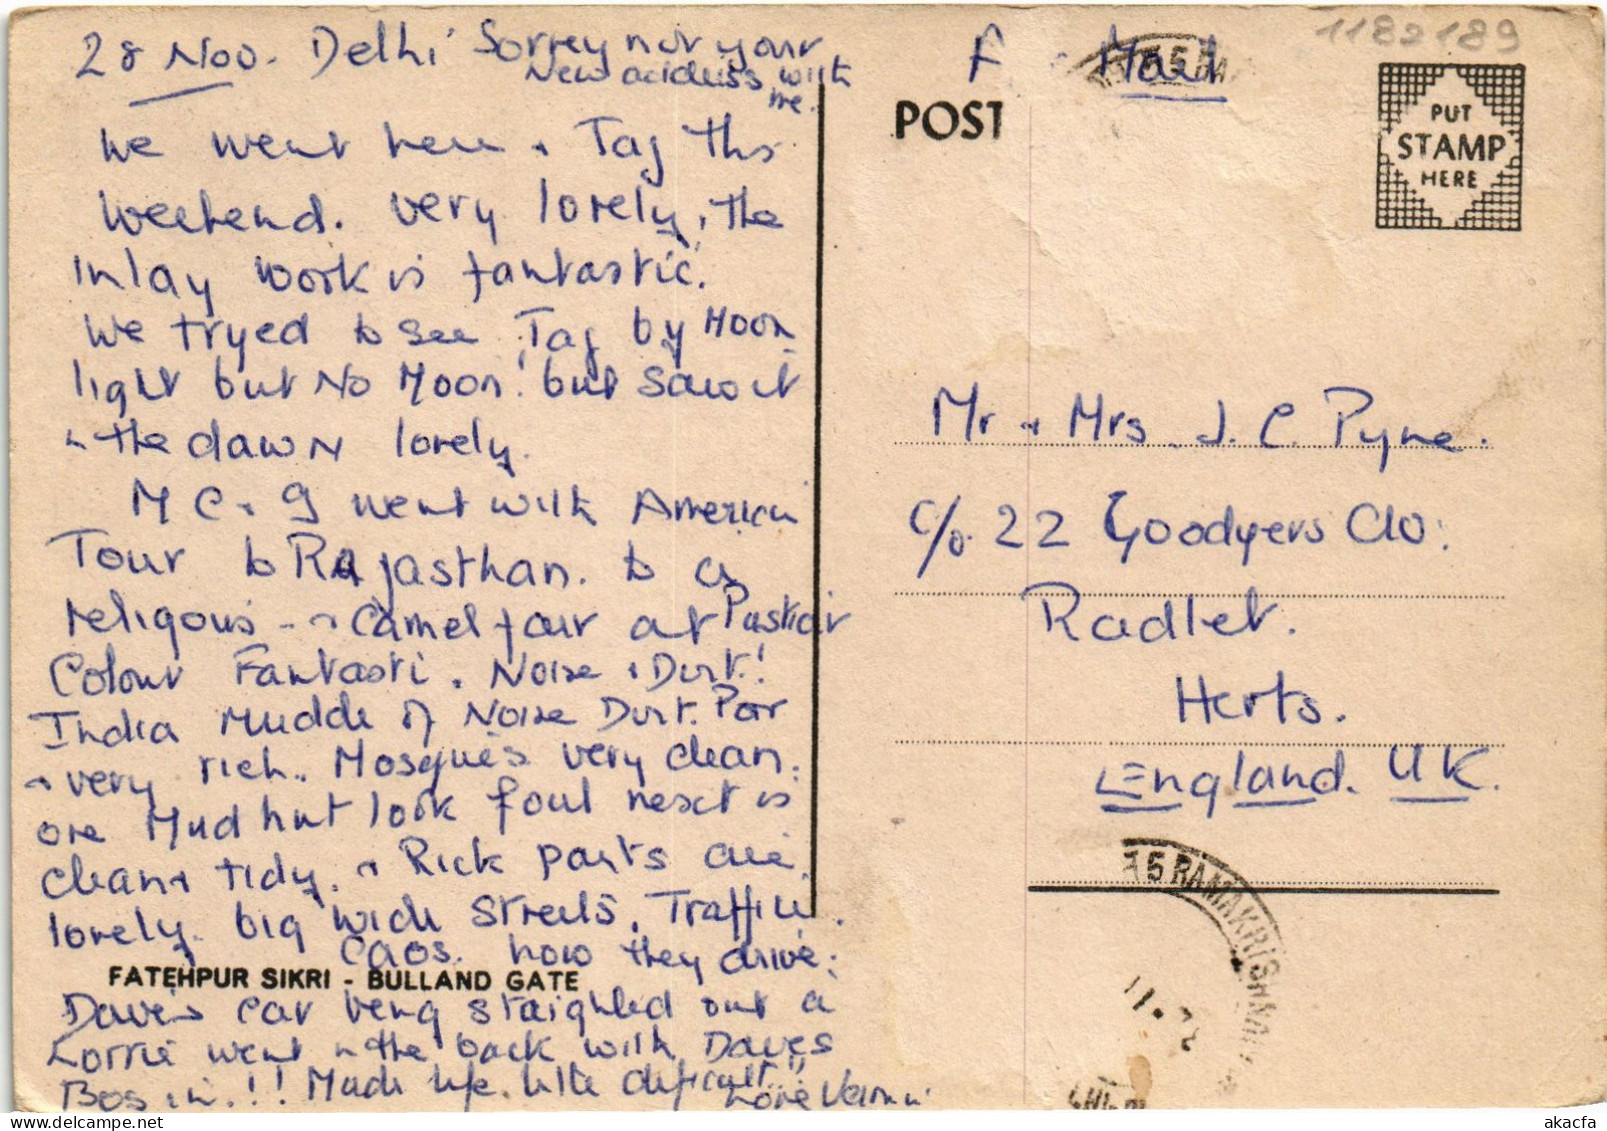 28 Nov. Delhi Sorrey not your
New address with
me.
We went here + Taj This
weekend. very lovely, the
Inlay work is fantastic.
We tryed to see Taj by Moon
light but No Moon! but saw it
in the dawn lovely.
M C + I went with American
Tour to Rajasthan. to a
religous - + Camel fair at Puskar
Colour Fantasti. Noise + Dirt!
India Muddle of Noise Dirt. Poor
+ very rich. Mosques very clean.
one Mud hut look foul next is
clean + tidy. + Rick parts are
lovely. big wide streets. Traffic
Caos. how they drive.
FATEHPUR SIKRI - BULLAND GATE
Daves car being staighted out a
Lorrie went in the back with Daves
Bos in.!! Made life little difficult!!
Love
A Mail
1182189
POST
PUT
STAMP
HERE
Mr + Mrs. J. C. Pyne.
c/o. 22 Goodyers Clo.
Radlet.
Herts.
England. UK.
5 RAMAKRISHNA
akacfa